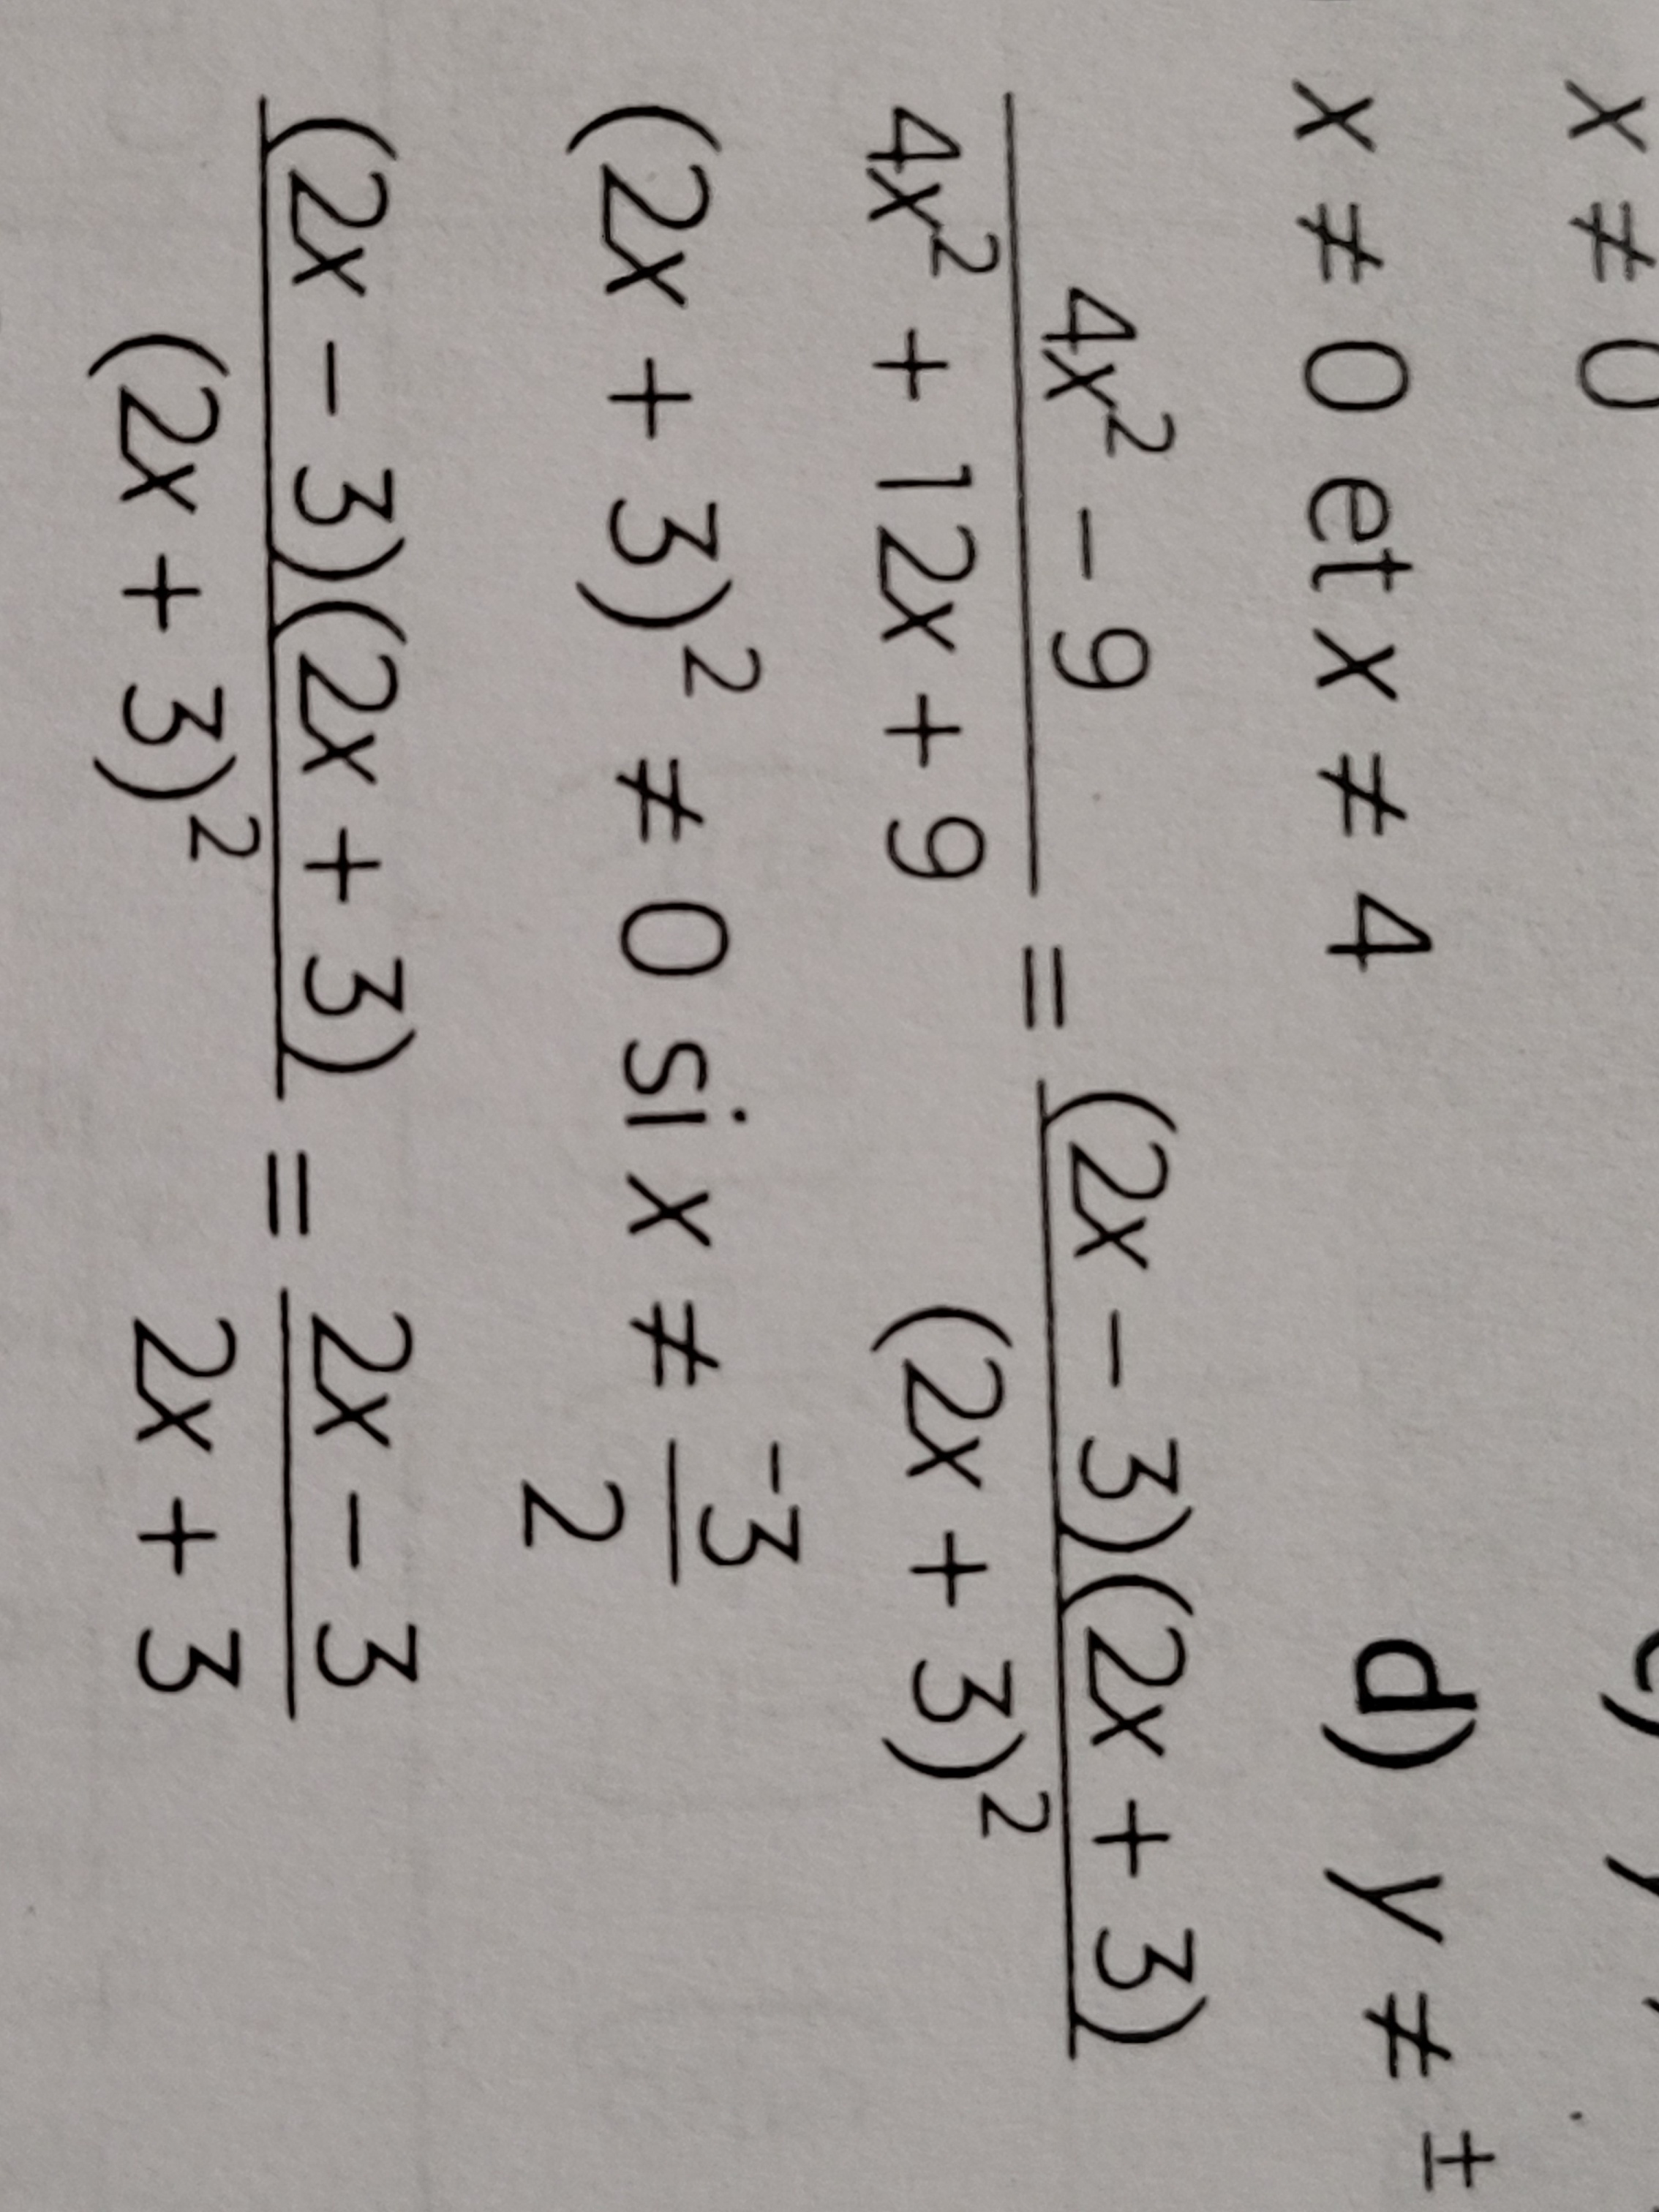 x ≠ 0
x ≠ 0 et x ≠ 4
d) y ≠ ±
4x² - 9 / 4x² + 12x + 9 = (2x - 3)(2x + 3) / (2x + 3)²
(2x + 3)² ≠ 0 si x ≠ -3/2
(2x - 3)(2x + 3) / (2x + 3)² = 2x - 3 / 2x + 3